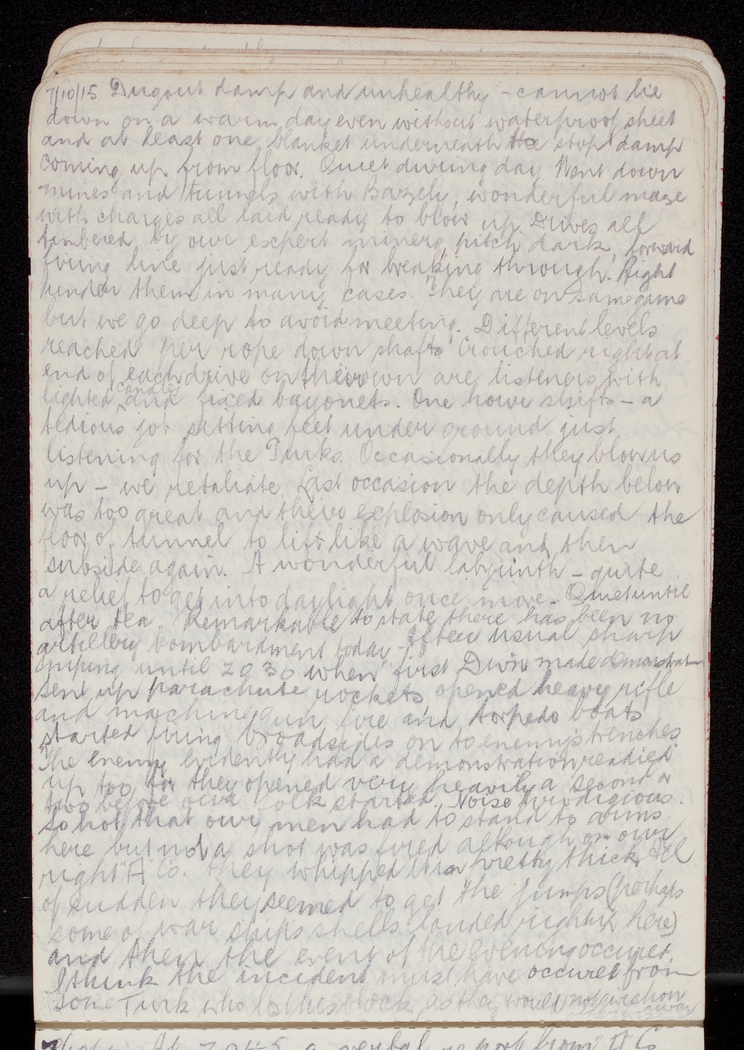 7/10/15 Dugout damp and unhealthy - cannot lie
down on a warm day even without waterproof sheet
and at least one blanket underneath to stop damp
coming up from floor. Quiet during day. Went down
mines and tunnels with Bazeley, wonderful maze
with charges all laid ready to blow up. Drives all
timbered by our expert miners, pitch dark, forward
firing line just ready for breaking through. Right
under them in many cases. They are on same game
but we go deep to avoid meeting. Different levels
reached per rope down shafts. Crouched right at
end of each drive on their own are listeners with
lighted candle and fixed bayonets. One hour shifts - a
tedious job sitting feet under ground just
listening for the Turks. Occasionally they blow us
up - we retaliate. Last occasion the depth below
was too great and the explosion only caused the
floor of tunnel to lift like a wave and then
subside again. A wonderful labyrinth - quite
a relief to get into daylight once more. Quiet until
after tea. Remarkable to state there has been no
artillery bombardment today - After usual sharp
sniping until 2030 when first Divn made demonstration
sent up parachute rockets opened heavy rifle
and machine gun fire and torpedo boats
started firing broadsides on to enemy's trenches
The enemy evidently had a demonstration readied
up too for they opened very heavily a second or
two before our folk started. Noise prodigious.
So hot that our men had to stand to arms
here but not a shot was fired although on our
right "A" Co. they whipped it in pretty thick. All
of sudden they seemed to get the jumps (perhaps
some of war ships shells landed right here)
and then the event of the evening occured.
I think the incident must have occured from
some Turk who lost his block as they would not
At 2045 a verbal report from "A" Co